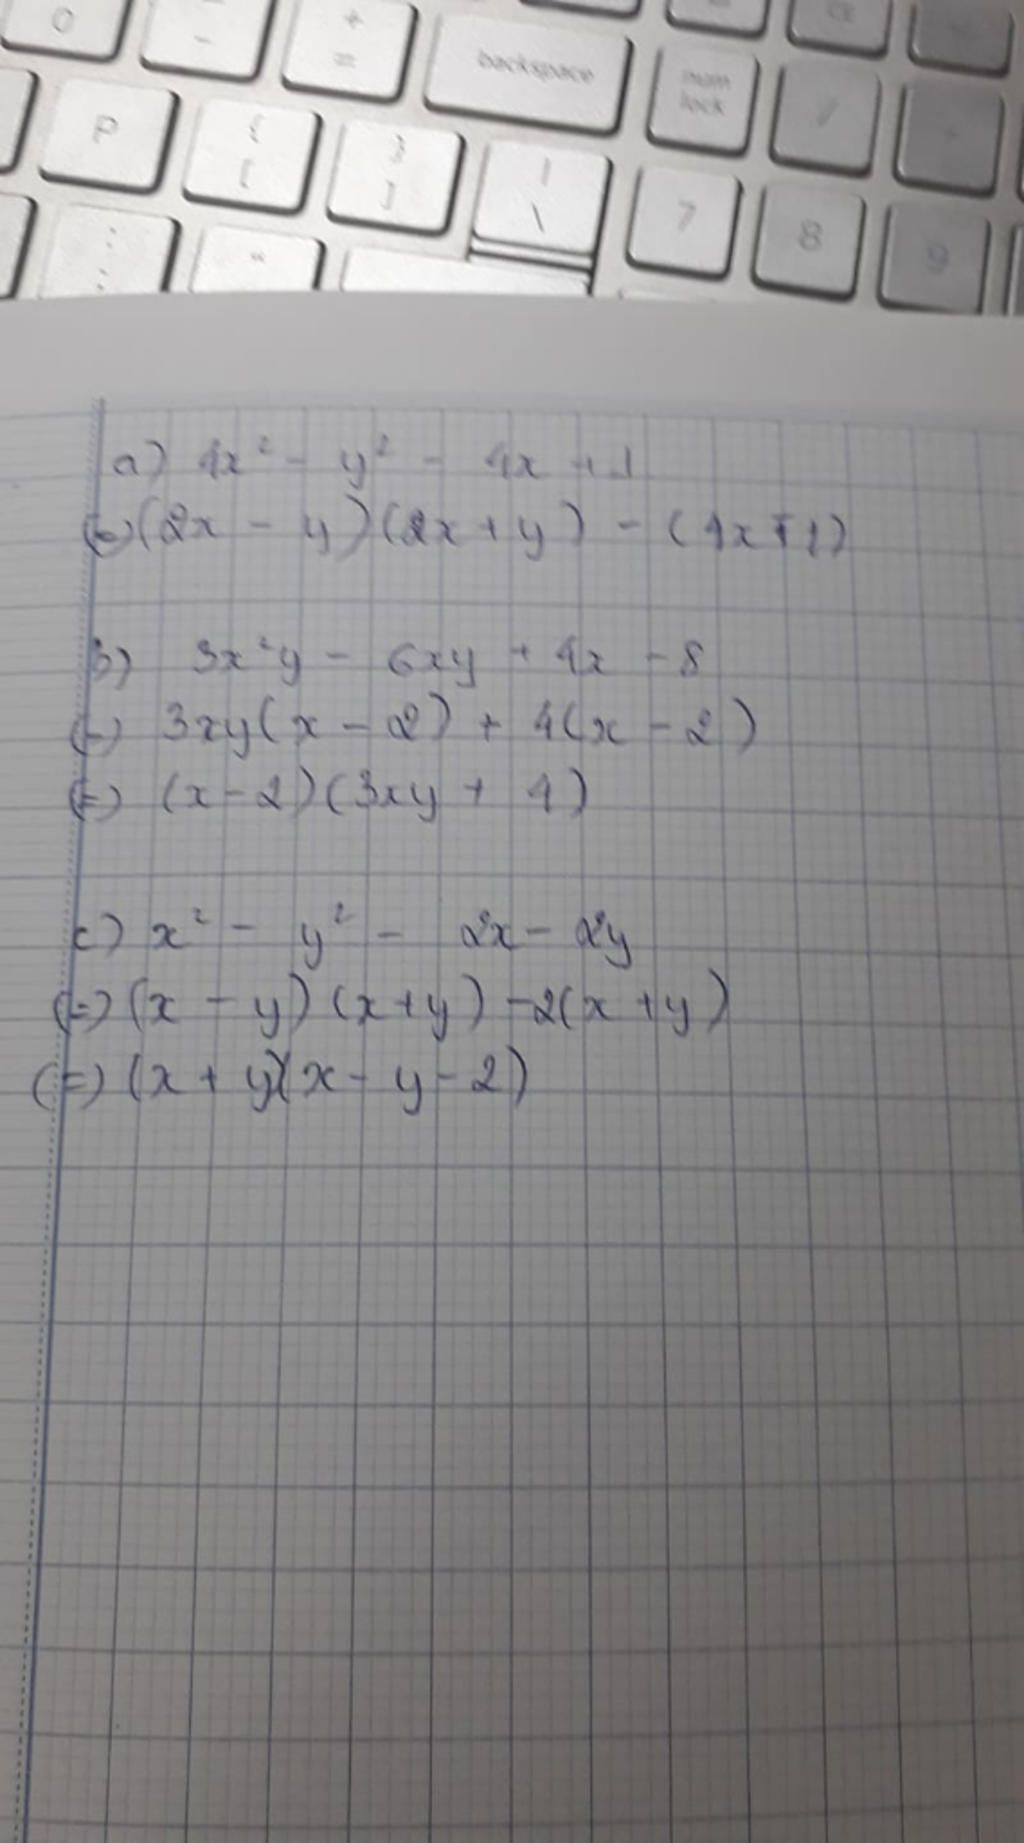 0 - + = backspace num lock / -
P { [ } ] | \ 7 8 9
: ; "
a) 4x² - y² - 4x + 1
(=) (2x - y)(2x + y) - (4x + 1)
b) 3x²y - 6xy + 4x - 8
(=) 3xy(x - 2) + 4(x - 2)
(=) (x - 2)(3xy + 4)
c) x² - y² - 2x - 2y
(=) (x - y)(x + y) - 2(x + y)
(=) (x + y)(x - y - 2)